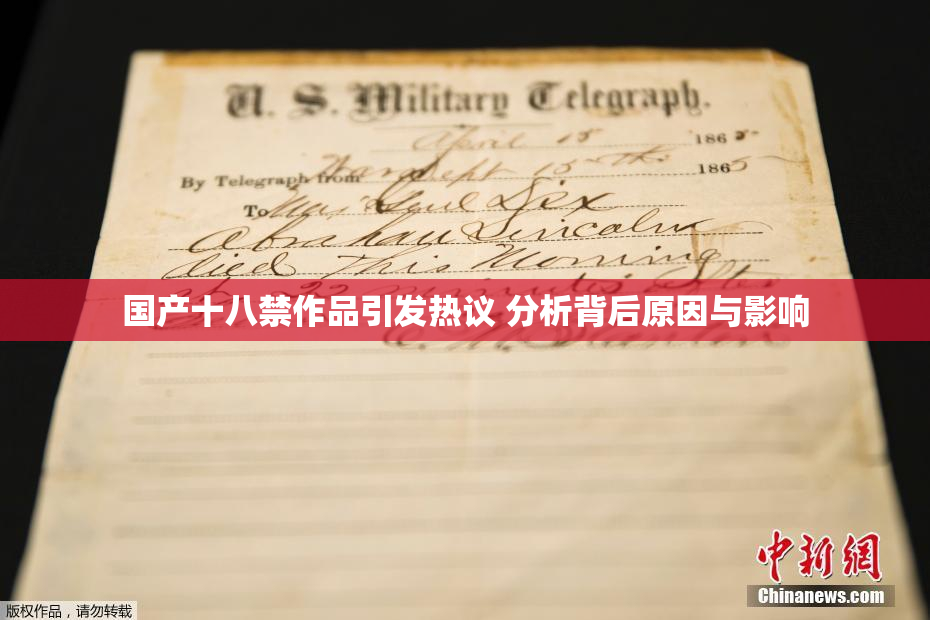 U. S. Military Telegraph.
April 15 1865
By Telegraph from War Dept 15th 1865
To Maj Genl Dix
Abraham Lincoln
died This Morning
at 22 minutes after
国产十八禁作品引发热议 分析背后原因与影响
E. M. Stanton
中新网
Chinanews.com
版权作品，请勿转载